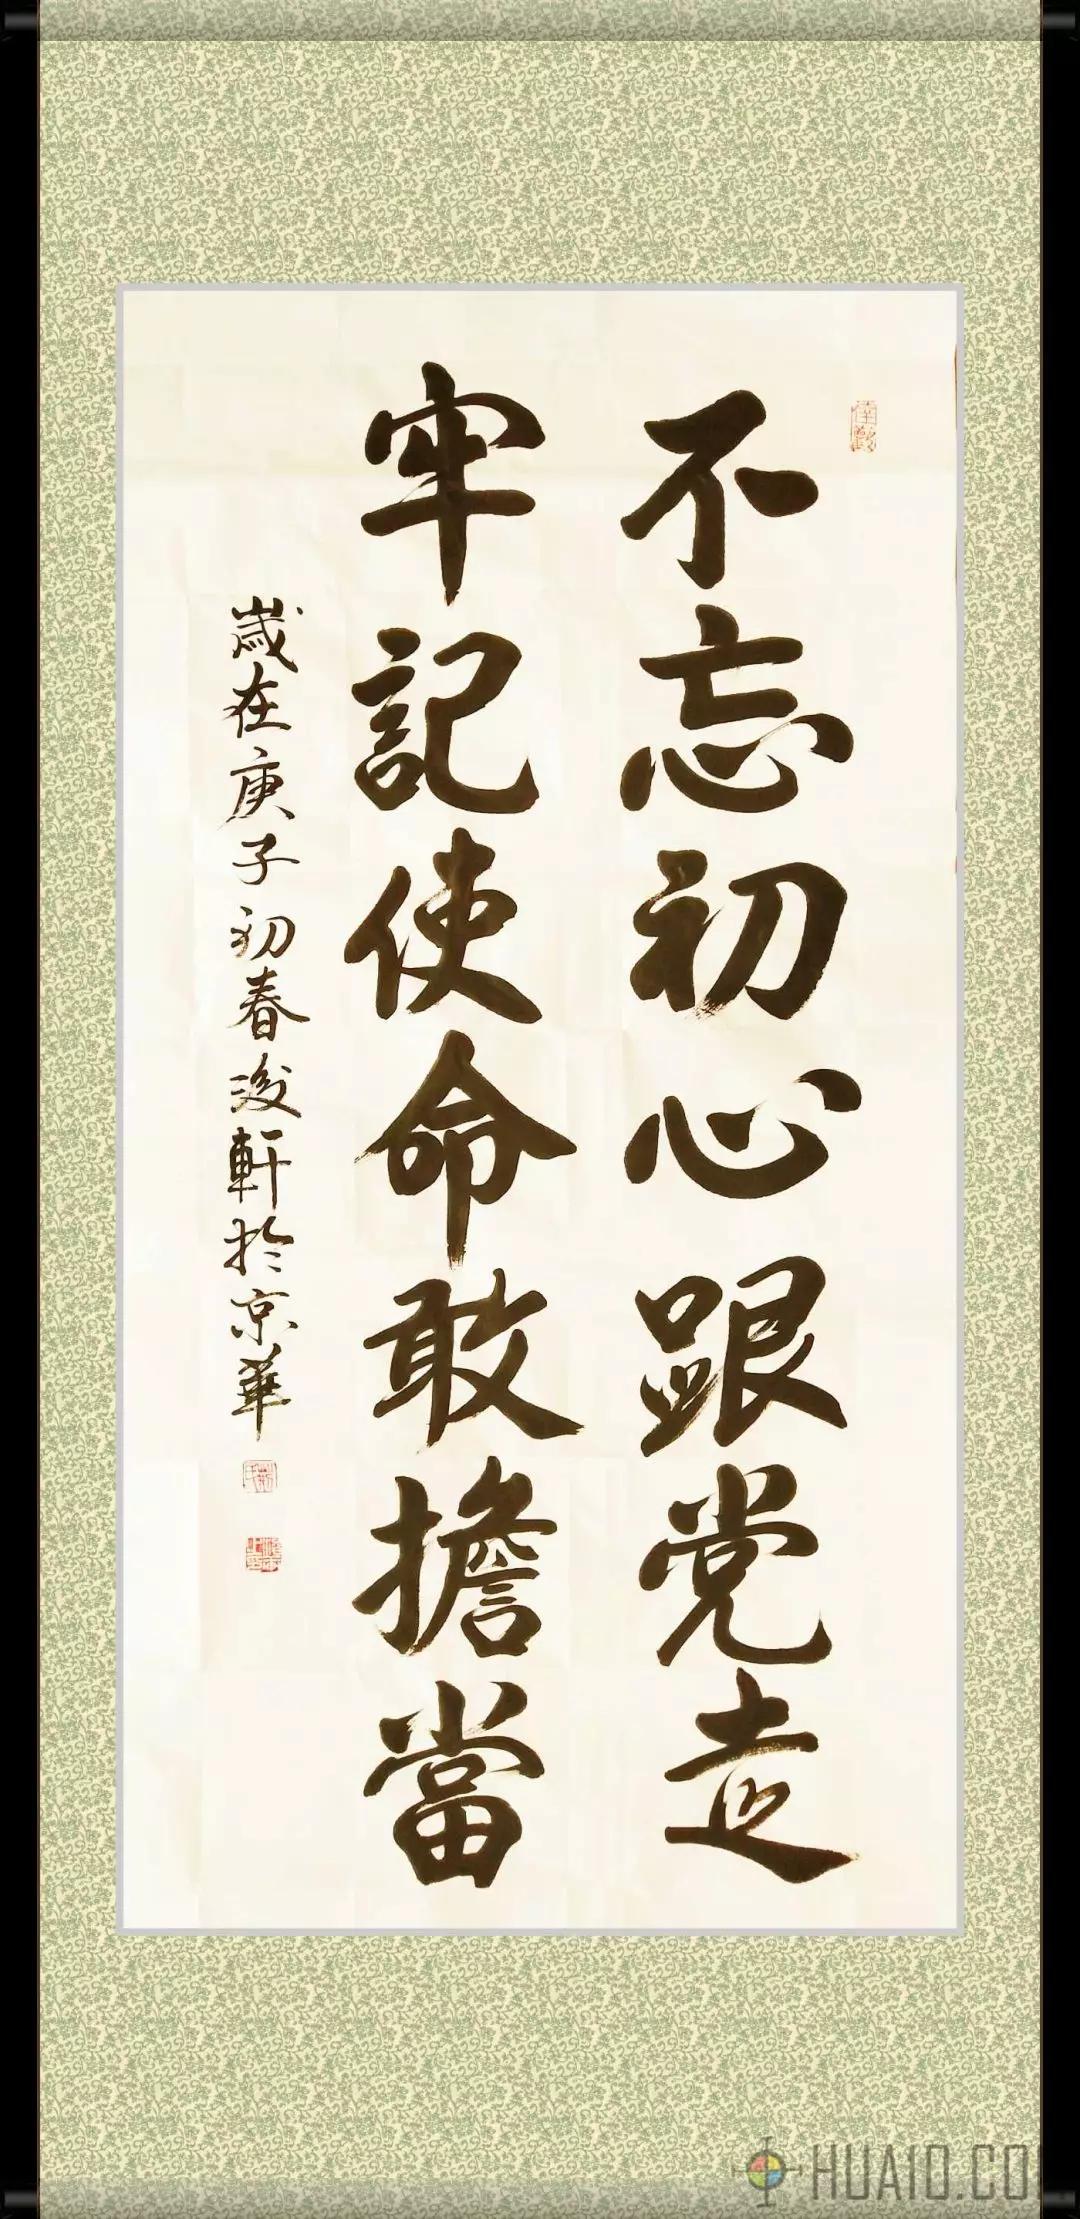 不忘初心跟党走
牢記使命敢擔當
歲在庚子初春浚軒於京華
HUA10.CO